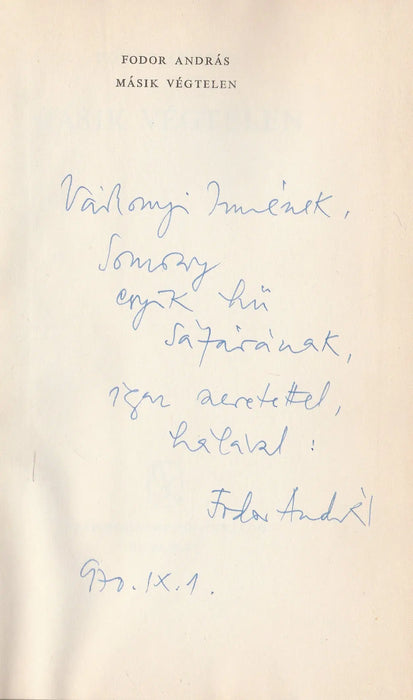 FODOR ANDRÁS
MÁSIK VÉGTELEN
Várkonyi Imrének,
Somogy
egyik hű
sáfárának,
igaz szeretettel,
hálával:
Fodor András
970. IX. 1.